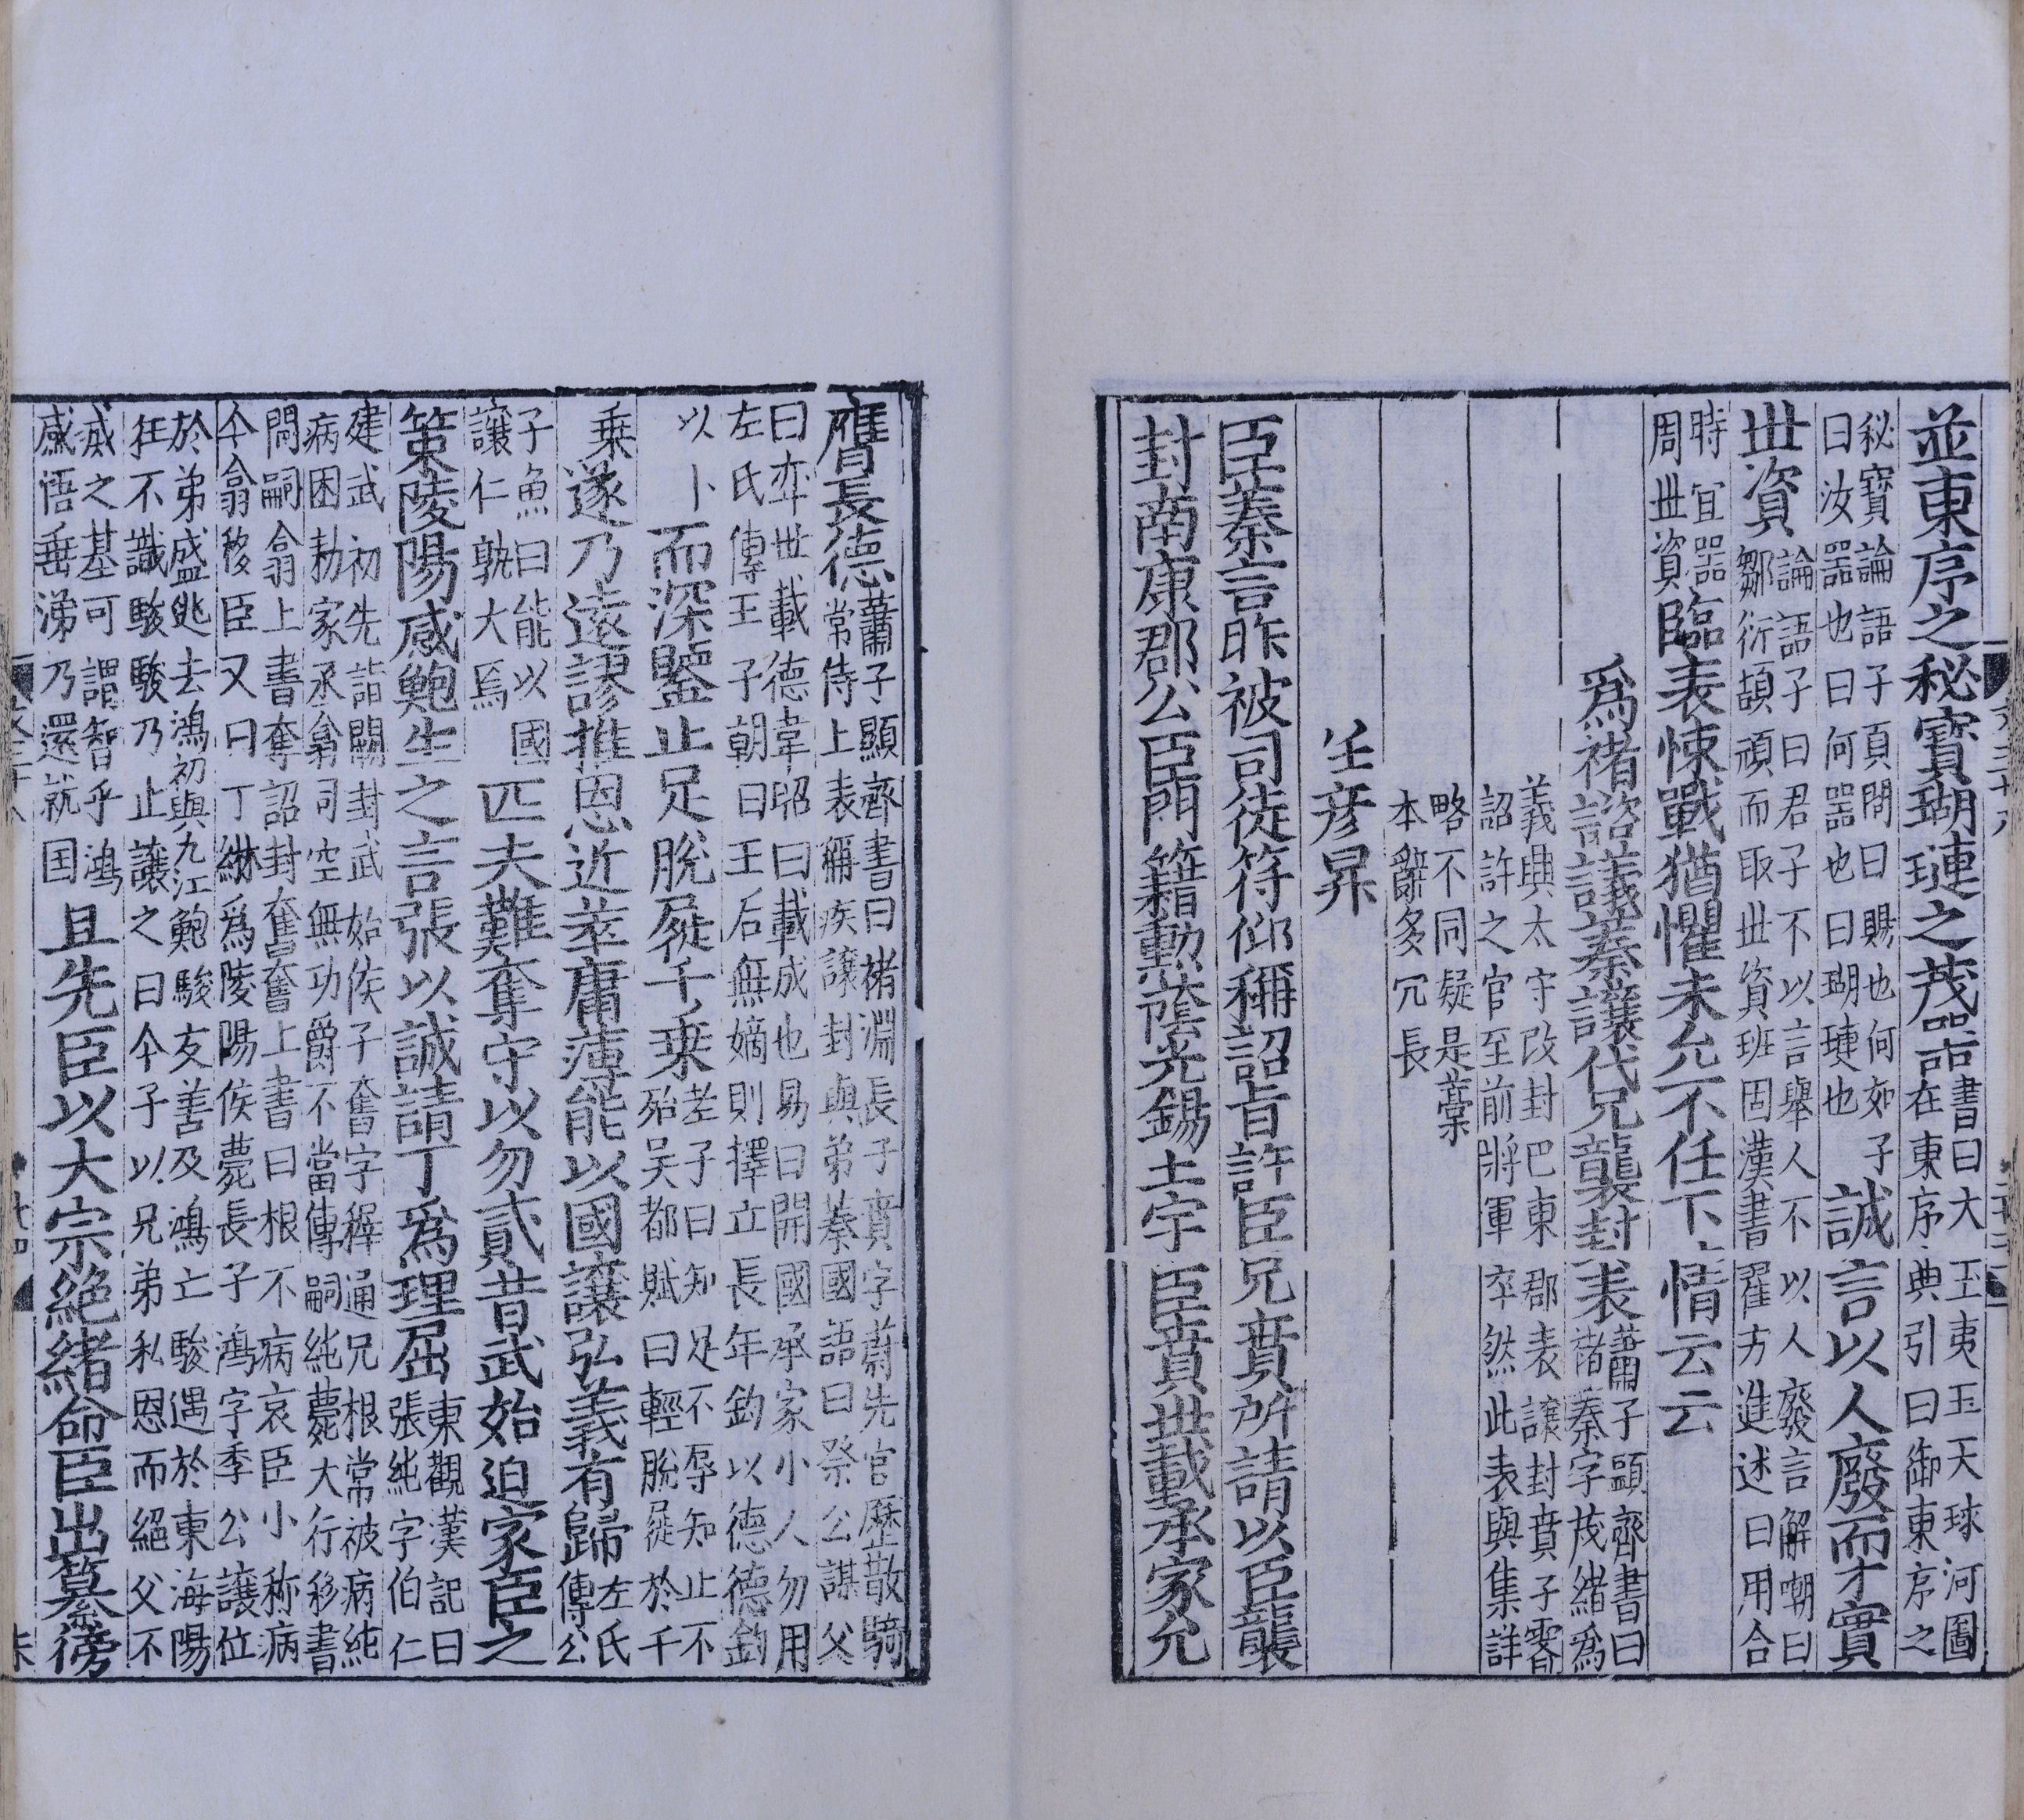 並東序之秘寶瑚璉之茂器書曰大玉夷玉天球河圖在東序典引曰御東序之
秘寶論語子貢問曰賜也何如子曰汝器也曰何器也曰瑚璉也誠言以人廢而才實
丗資論語子曰君子不以言舉人不以人廢言解嘲曰鄒衍頡頏而取丗資班固漢書翟方進述曰用合
時宜器周丗資臨表悚戰猶懼未允不任下情云云
爲褚諮議蓁讓代兄襲封表蕭子顯齊書曰褚蓁字茂緒爲
義興太守改封巴東郡表讓封賁子霽詔許之官至前將軍卒然此表與集詳
略不同疑是藁本辭多冗長
任彦昇
臣蓁言昨被司徒符仰稱詔旨許臣兄賁所請以臣襲
封南康郡公臣門籍勳蔭光錫土宇臣賁丗載承家允
膺長德蕭子顯齊書曰褚淵長子賁字蔚先官歷散騎常侍上表稱疾讓封與弟蓁國語曰祭公謀父
曰弈丗載德韋昭曰載成也易曰開國承家小人勿用左氏傳王子朝曰王后無嫡則擇立長年鈞以德德鈞
以卜而深鑒止足脫屣千乗老子曰知足不辱知止不殆吴都賦曰輕脫屣於千
乗遂乃遠謬推恩近萃庸薄能以國讓弘義有歸左氏傳公
子魚曰能以國讓仁孰大焉匹夫難奪守以勿貳昔武始迫家臣之
策陵陽感鮑生之言張以誠請丁爲理屈東觀漢記曰張純字伯仁
建武初先詣闕封武始侯子奮字穉通兄根常被病純病困勑家丞翕司空無功爵不當傳嗣純薨大行移書
問嗣翕上書奪詔封奮奮上書曰根不病哀臣小称病今翕移臣又曰丁綝爲陵陽侯薨長子鴻字季公讓位
於弟盛逃去鴻初與九江鮑駿友善及鴻亡駿遇於東海陽狂不識駿駿乃止讓之曰今子以兄弟私恩而絕父不
滅之基可謂智乎鴻感悟垂涕乃還就国且先臣以大宗絶緒命臣出纂傍